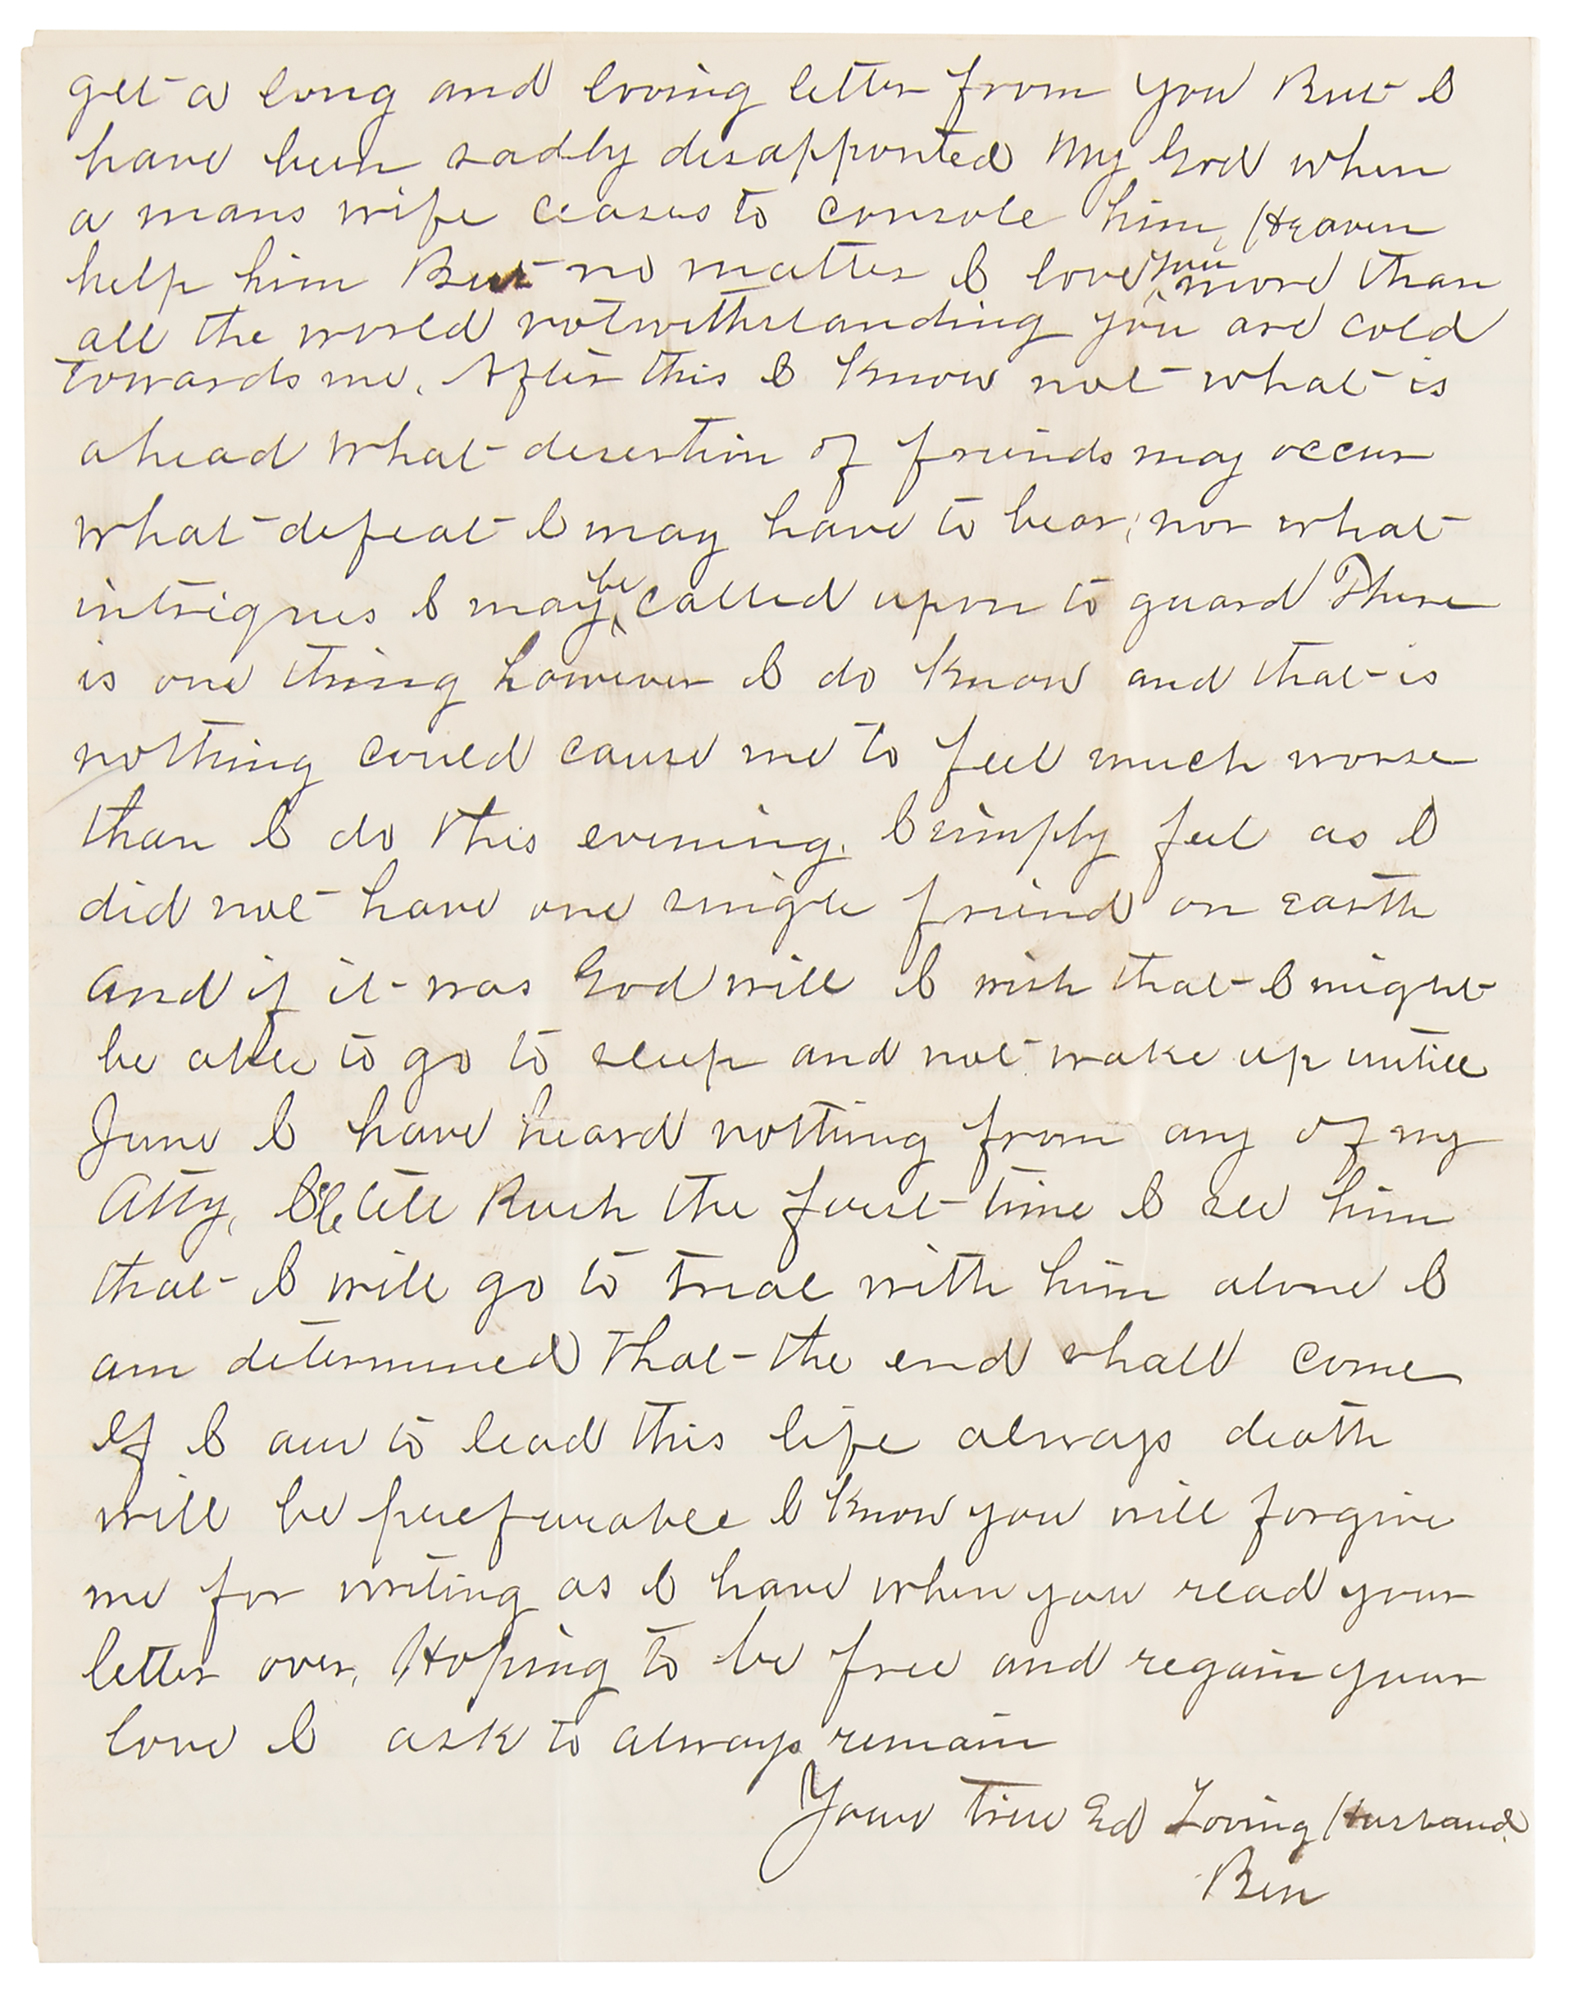 get a long and loving letter from you But I
have been sadly disapponted My God when
a mans wife ceases to console him, Heaven
help him But no matter I love you more than
all the world notwithstanding you are cold
towards me. After this I know not what is
ahead what desertion of friends may occur
what defeat I may have to bear, nor what
intrigues I may be called upon to guard There
is one thing however I do know and that is
nothing could cause me to feel much worse
than I do this evening. I simply feel as I
did not have one single friend on earth
and if it was God will I wish that I might
be able to go to sleep and not wake up untill
June I have heard nothing from any of my
Atty, I'le tell Rush the first time I see him
that I will go to trial with him alone I
am determined that the end shall come
If I am to lead this life always death
will be prefurable I know you will forgive
me for writing as I have when you read your
letter over, Hoping to be free and regain your
love I ask to always remain
Your true Ed Loving Husband.
Ben